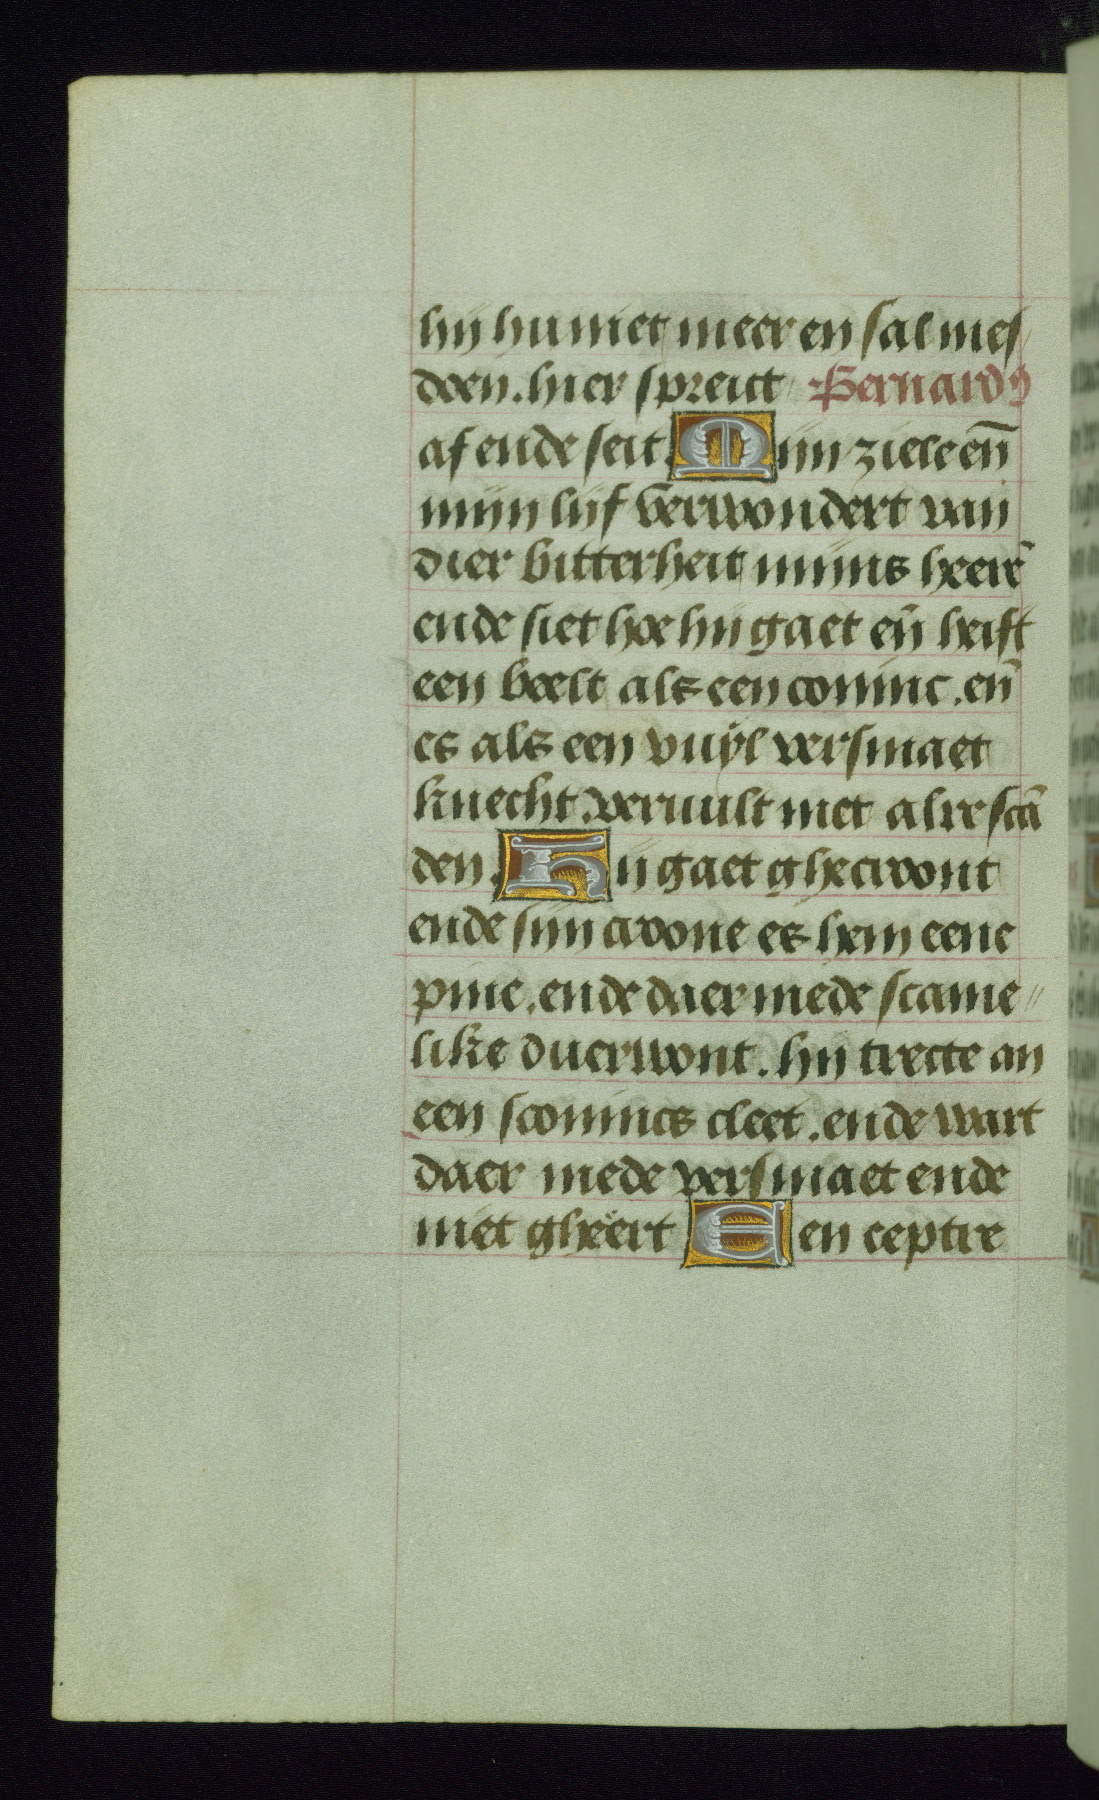 hij hu niet meer en sal mes
doen. hier spreict Bernardꝰ
af ende seit. Mijn ziele en̄
mijn lijf v̄erwondert van
dier bitterheit mijns heerē
ende siet hoe hij gaet en̄ heift
een beelt als een coninc. en̄
es als een vuÿl versmaet
knecht. veruult met alre scā
den. Hij gaet ghecroont
ende sijn crone es hem eene
pine. ende daer mede scame〃
like duerwont. hij trecte an
een sconincs cleet. ende wart
daer mede versmaet ende
niet gheëert Een ceptre